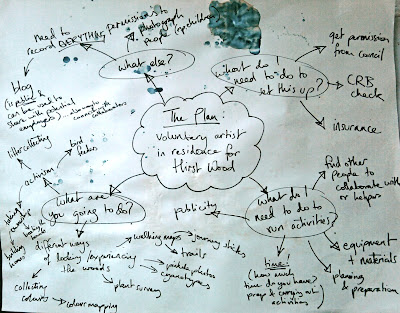 The Plan:
voluntary artist
in residence for
Hirst Wood
what else?
need to
record EVERYTHING
permissions to
photograph
people (esp. children)
blog
can be used to
share with potential
what do I
need to do to
set this up?
get permission
from council
CRB
check
insurance
what do I
need to do to
run activities?
find other
people to
collaborate with
or helpers
equipment
+ materials
planning
& preparation
time!
(how much
time do you have?
prep & carrying out
activities)
publicity
what are
you going to do?
activism
litter collecting
bird
feeders
making
homes
different ways
of looking/experiencing
the woods
walking maps
journey sticks
trails
pinhole photos
cyanotypes
plant survey
collecting
colours
colour mapping